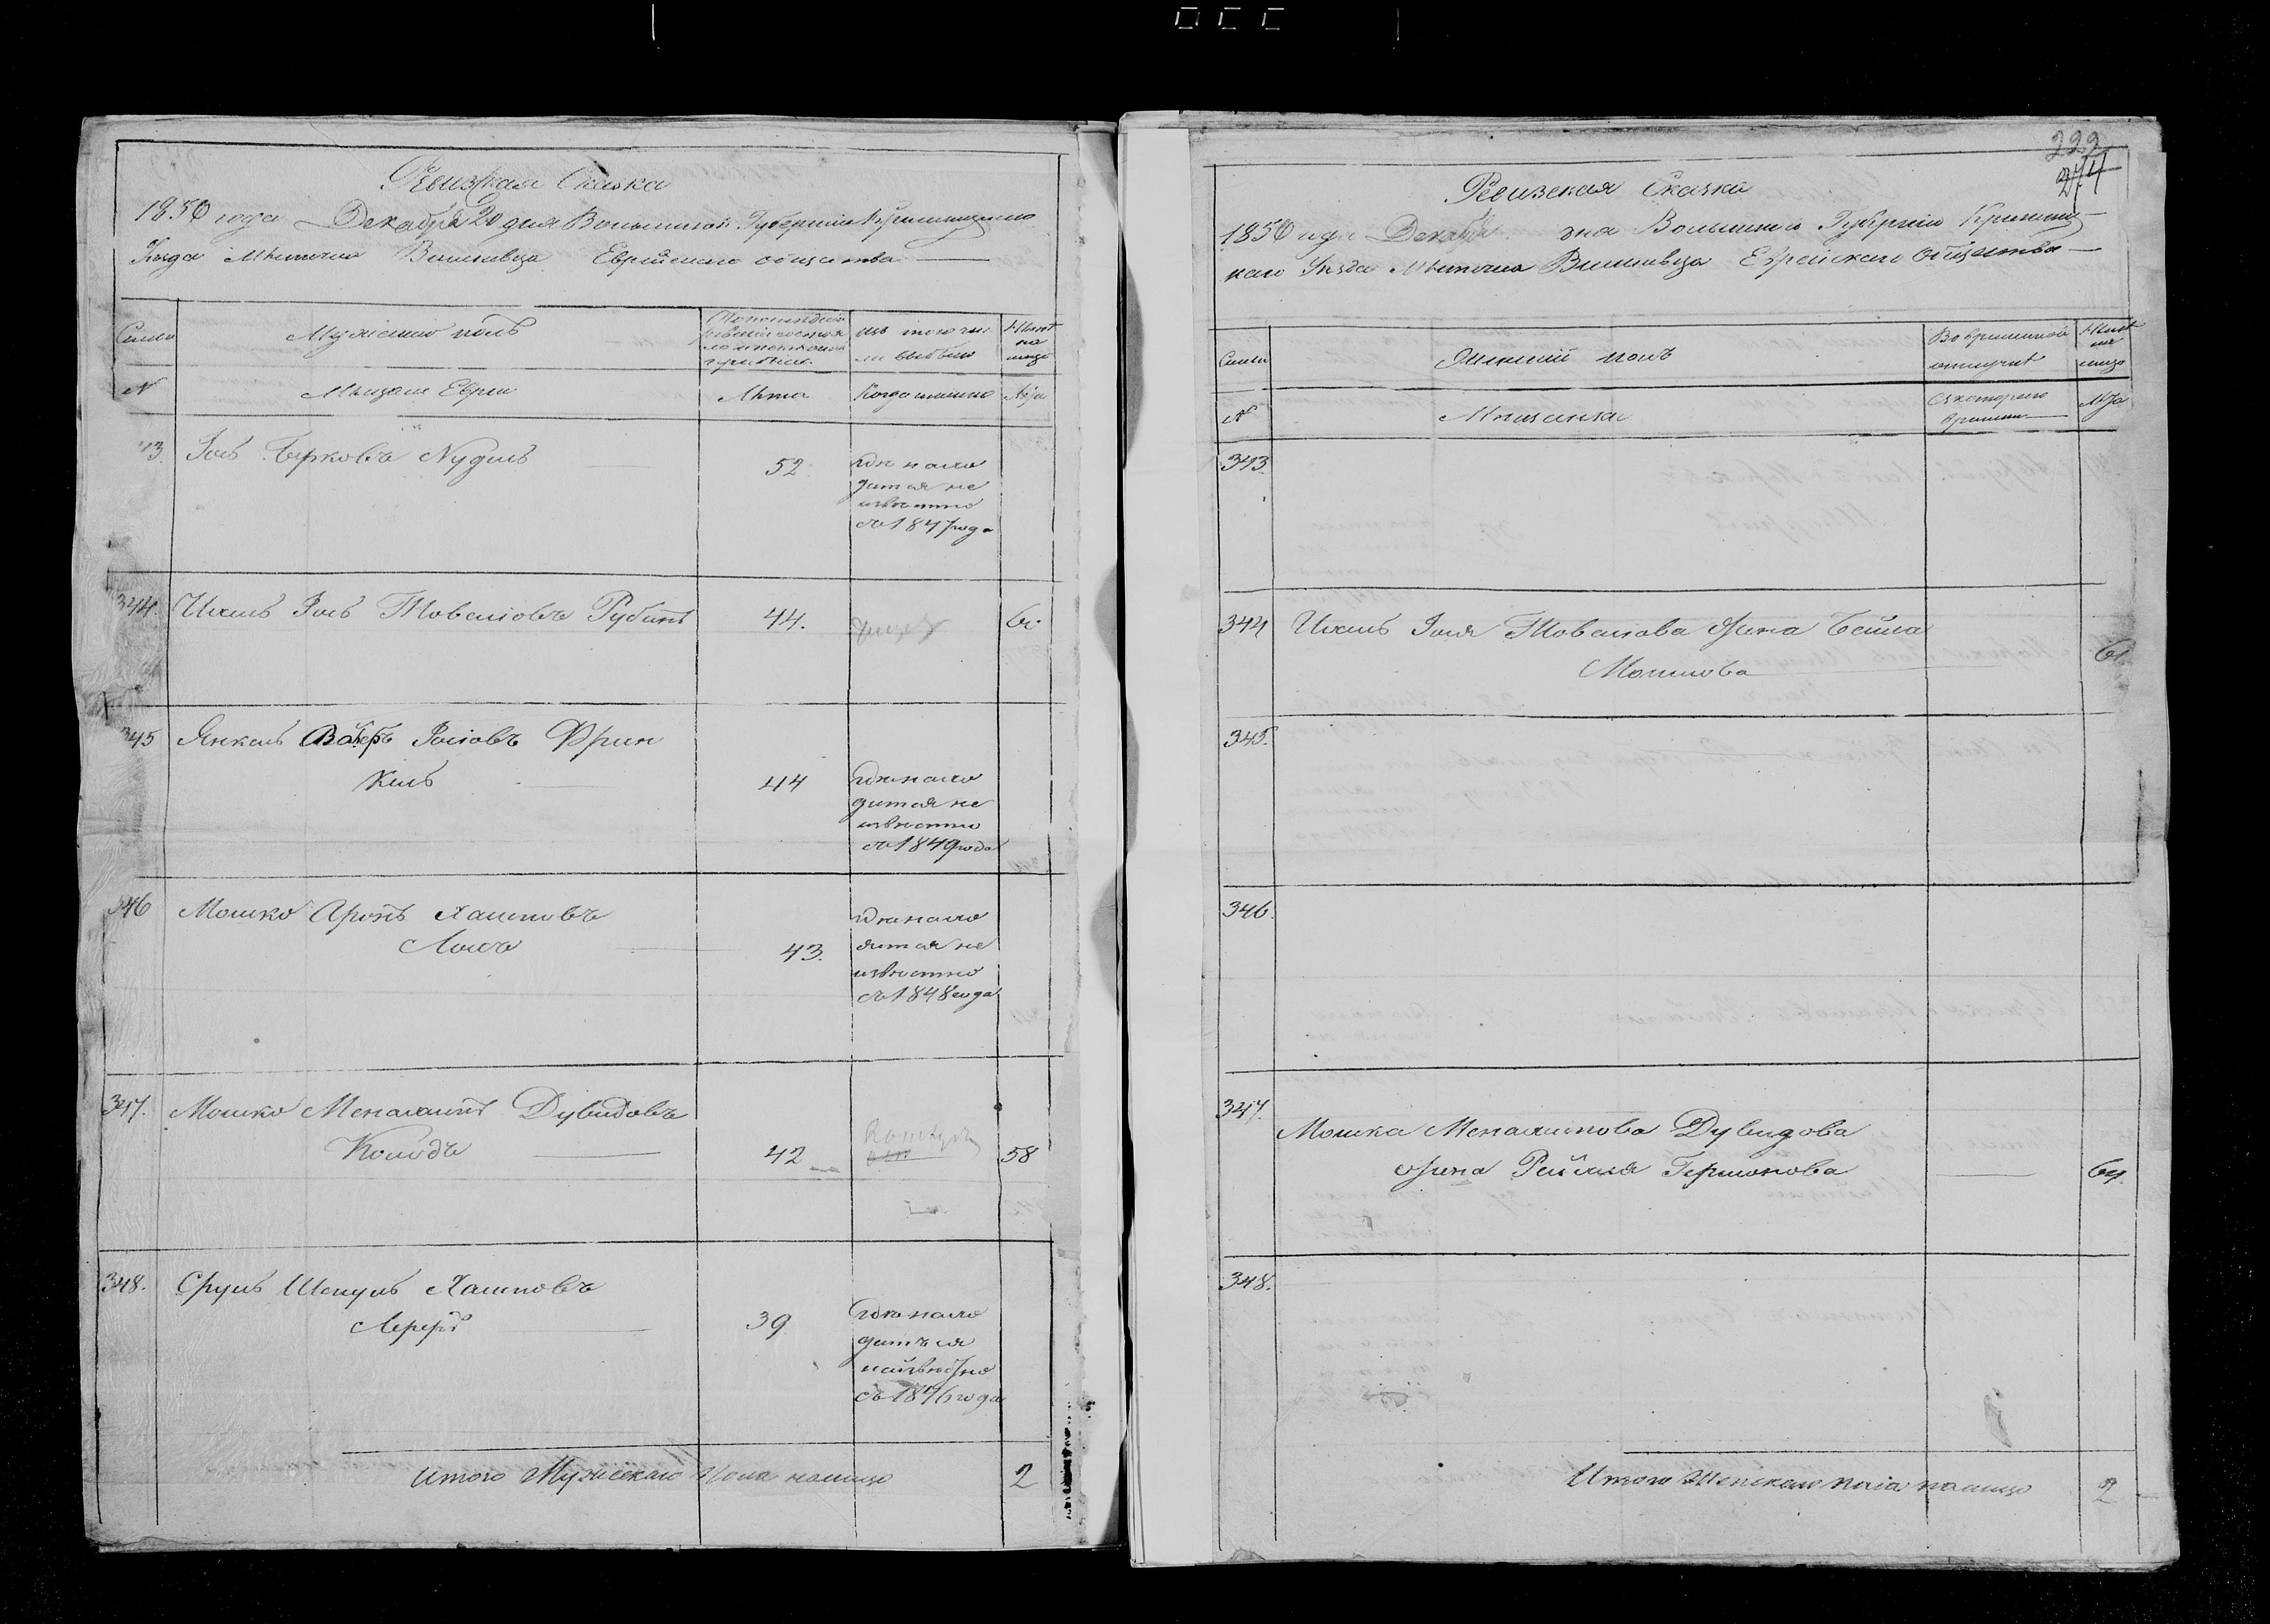 Ревизская Сказка
1850 года Декабря 20 дня Волынской Губернии Кременецкаго
Уезда Местечка Вишневца Еврейскаго общества
Семьи
Мужеский полъ
изъ того чи
сла выбыло
Ныне
на
лицо
№
Мещане Евреи
Лета
Когда именно
Лета
Іось Берковъ Нудель
52
где нахо
дится не
известно
съ 1847 года
344.
Ихель Іось Товелiовъ Рубинъ
44.
345
Янкель Іосiовъ Фрин
кель
44
где нахо
дится не
известно
съ 1849 года
346
Мошко Аронъ Хаимовъ
43.
где нахо
дится не
известно
съ 1848 года
347.
Мошко Менахимъ Дувидовъ
Колодъ
42
58
348.
Сруль Шепсель Хаимовъ
Лерер
39
где нахо
дится
неизвестно
съ 1846 года
Итого Мужескаго Пола налицо
2
223
274
Ревизская Сказка
1850 года Декабря дня Волынской Губернии Кременец
каго Уезда Местечка Вишневца Еврейскаго Общества
Семьи
Женский полъ
Во временной
отлучке
Ныне
на
лицо
№
Мещанки
Съ котораго
времени
Лета
343.
344
Ихель Іося Товелiова жена Бейла
Мошкова
61.
345.
346.
347.
Мошка Менахимова Дувидова
жена Рейзля Гершонова
64.
348.
Итого Женскаго пола налицо
2